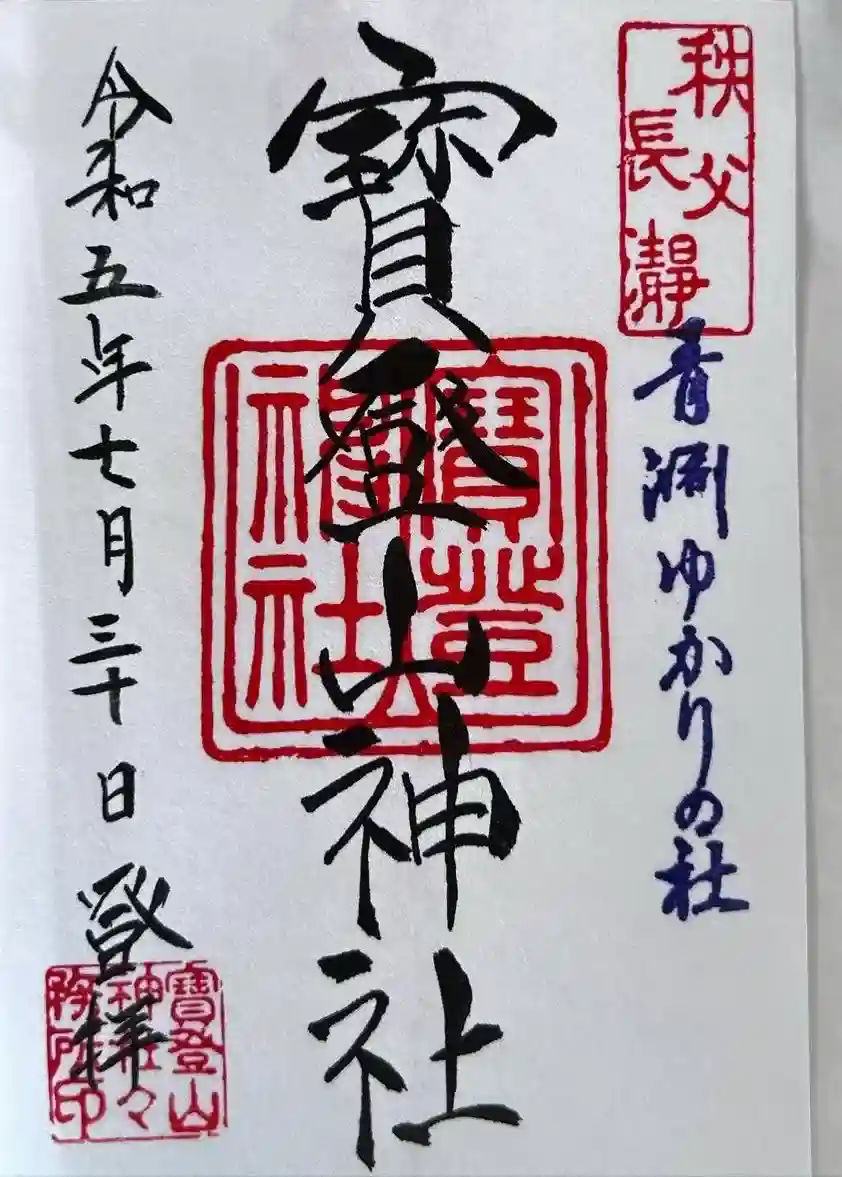 秩父
長瀞
青淵ゆかりの社
寳登山神社
寳登山
神社々
務所印
令和五年七月三十日
登拝